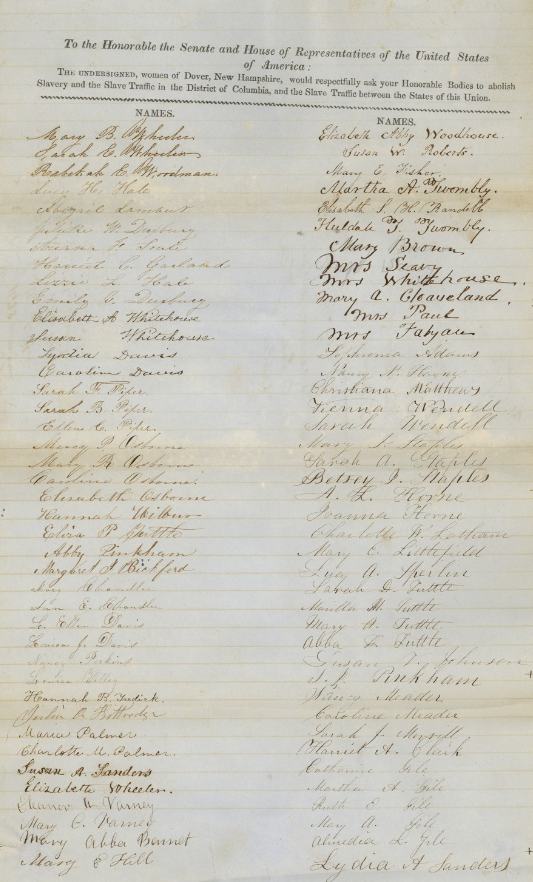 To the Honorable the Senate and House of Representatives of the United States
of America:
The undersigned, women of Dover, New Hampshire, would respectfully ask your Honorable Bodies to abolish
Slavery and the Slave Traffic in the District of Columbia, and the Slave Traffic between the States of this Union.
NAMES.
Mary B. Wheeler
Sarah E. Wheeler
Rebekah E. Woodman
Lucy H. Hale
Abigail Lambert
W. Duxbury
Harriet C. Garland
Lizzie L. Hale
Emily G. Duxbury
Elisabeth A Whitehouse
Susan Whitehouse
Lydia Davis
Caroline Davis
Sarah F. Piper
Sarah B. Piper
Ellen C. Piper
Mercy P. Osborne
Mary R Osborne
Caroline Osborne
Elisabeth Osborne
Hannah Wilbur
Eliza P. Tuttle
Abby Pinkham
Margaret J Bickford
Chandler
Ann E. Chandler
L. Ellen Davis
J. Davis
Nancy Perkins
Hannah R.
Maria Palmer
Charlotte M. Palmer.
Susan A. Sanders
Elizabeth Wheeler.
Eleanor W Varney
Mary C. Varney
Mary Abba Bennet
Mary E Hill
NAMES.
Elizabeth Abby Woodhouse.
Susan W. Roberts.
Mary E. Fisher.
Martha A. Twombly.
Elisabeth S. H. Randell
Huldah Twombly.
Mary Brown
Mrs Seavy
Mrs Whitehouse.
Mary A. Cleaveland.
Mrs Paul
Mrs Fabyan
Sophronia Adams
Nancy N.
Christiana Matthews
Vienna Wendell
Sarah Wendell
Mary S. Staples
Sarah A. Staples
Betsey J. Staples
A. L. Horne
Joanna Horne
Charlotte K. Lotham
Mary C. Littlefield
Lucy A.
Sarah D. Tuttle
M. Tuttle
Mary A. Tuttle
Abba L. Tuttle
Susan Johnson
Pinkham
Nancy Meader
Caroline Meader
Sarah J. Merrill
Harriet A. Clark
Catharine Gile
Martha A. Gile
Ruth E. Gile
Mary A. Gile
Almedia L. Gile
Lydia A Sanders